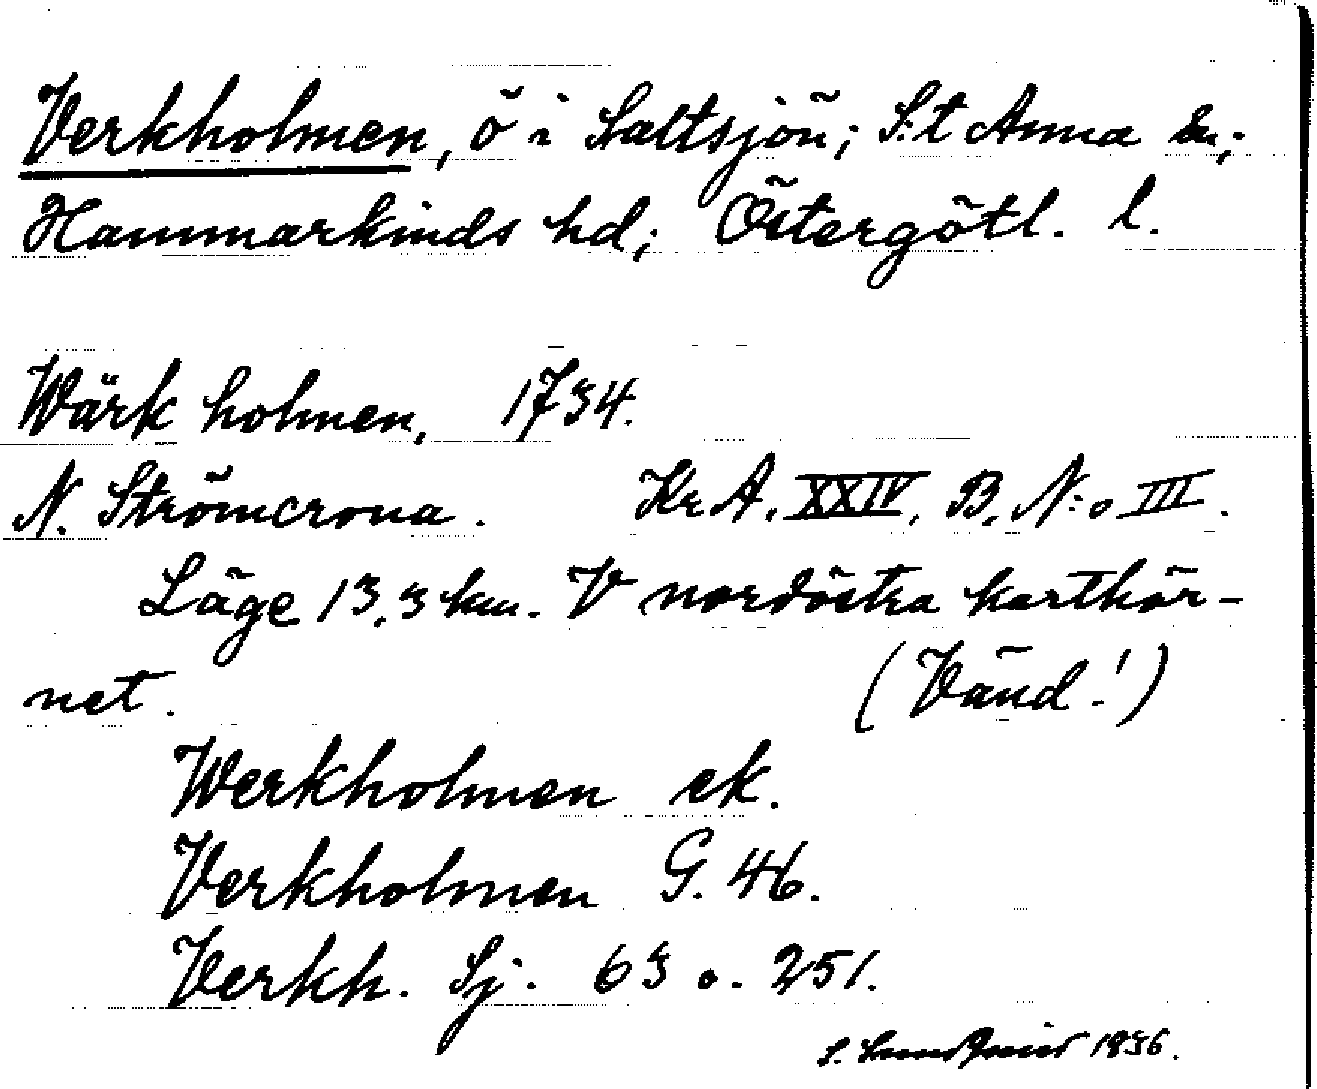 Verkholmen, ö i Saltsjön; S:t Anna sn;
Hammarkinds hd; Östergötl. l.
Wärk holmen, 1734.
N. Strömcrona. Kr A. XXIV, B. N:o III.
Läge 13,3 km. V nordöstra karthör-
net. (Vänd!)
Werkholmen ek.
Verkholmen G. 46.
Verkh. Sj. 63 o. 251.
S. 1936.